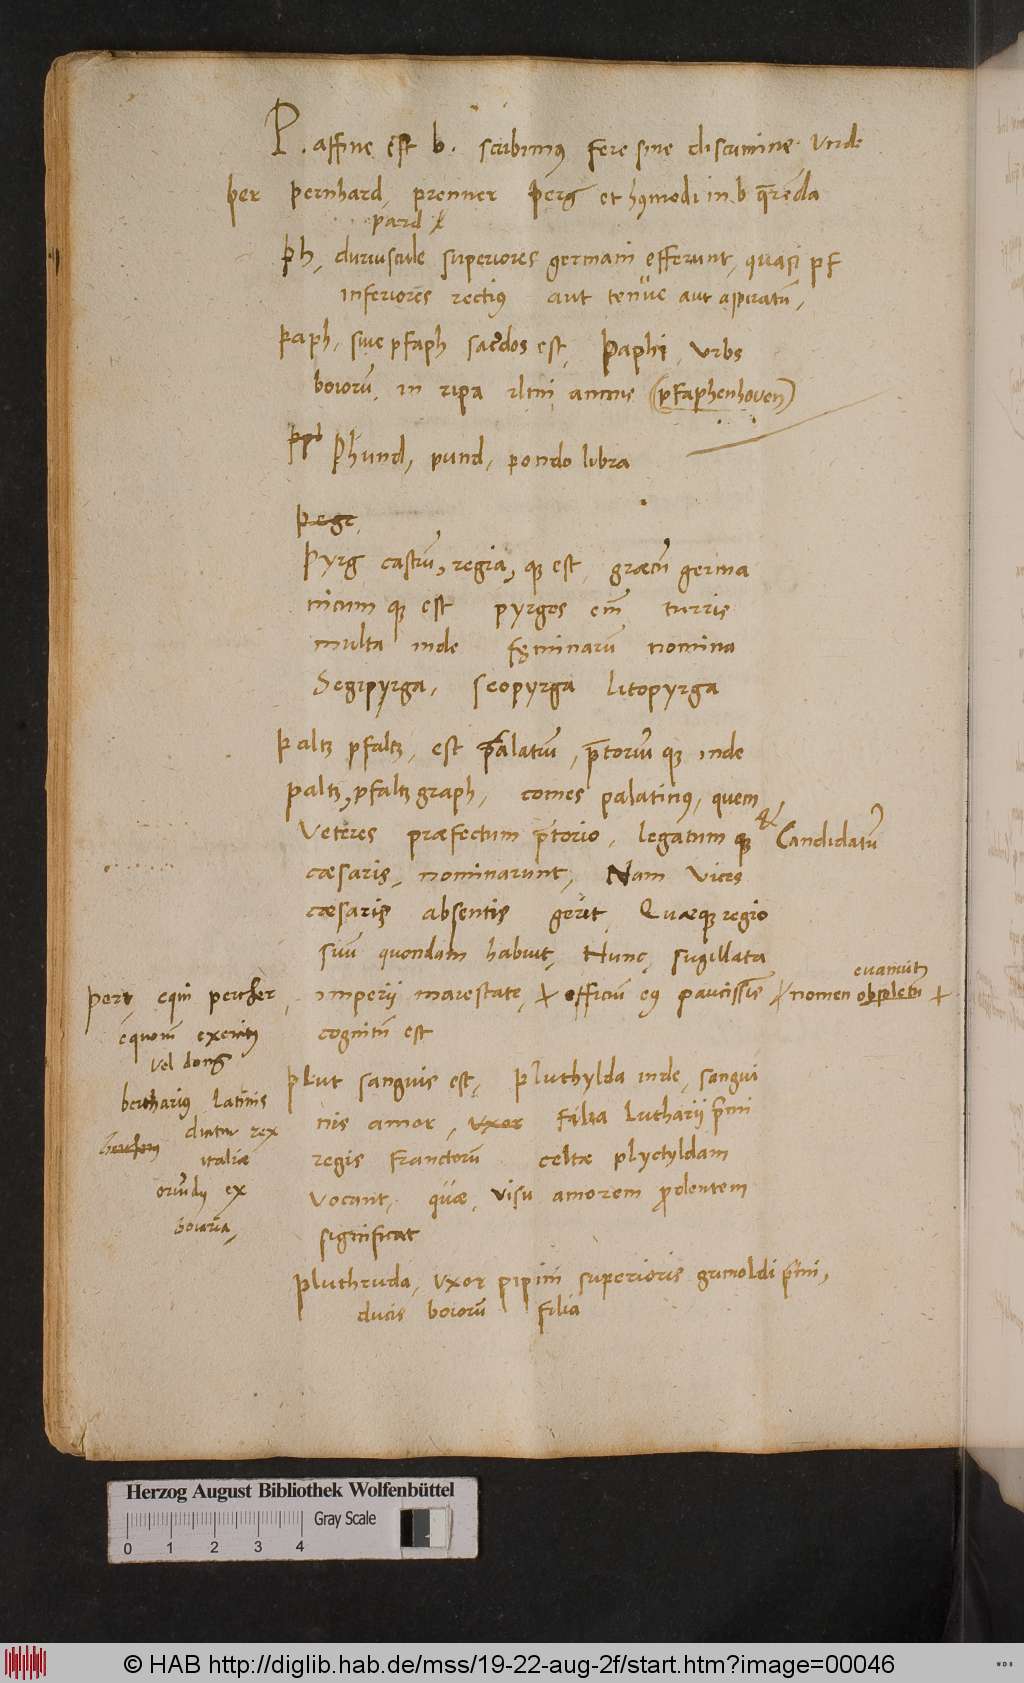 P. affine est b. scribimus fere sine discrimine Unde
per pernhard, prenner perg et hꝰmodi in b q̄renda
pard
ph, duriuscule superiores germani efferunt, quasi pf
inferiores rectiꝰ aut tenue aut aspiratū,
paph, siue pfaph sac̄dos est, Paphi, vrbs
boiorū, in ripa amnis (pfaphenhoven)
Phund, pund, pondo libra
pegr,
Pyrg castrū, regia, qꝫ est, græcū germa
nicum qꝫ est pyrgos em̄ turris
multa inde fęminarū nomina
Segrpyrga, seopyrga litopyrga
paltz pfaltz, est palatiū, p̄toriū qꝫ inde
paltz, pfaltzgraph, comes palatinꝰ, quem
Veteres præfectum p̄torio, legatum qꝫ & Candidatū
cæsaris, nominarunt, Nam vices
cæsaris absentis gerit, Quæqꝫ regio
suū quondam habuit, Nunc, sugillata
imperij maiestate, officiū eꝰ paucissīs nomen obsoletū
evanuit
cognitū est
pert, equi percher,
vel
bertharius Latinis
rex
italiæ
ex
boiaria,
plut sanguis est, pluthylda inde, sangui
nis amor, uxor filia Lutharij
regis francorū celtæ plyctyldam
vocant, quæ, visu amorem
significat
pluthruda, vxor pipini superioris grimoldi
ducis boiorū filia
Herzog August Bibliothek Wolfenbüttel
Gray Scale
0 1 2 3 4
© HAB http://diglib.hab.de/mss/19-22-aug-2f/start.htm?image=00046